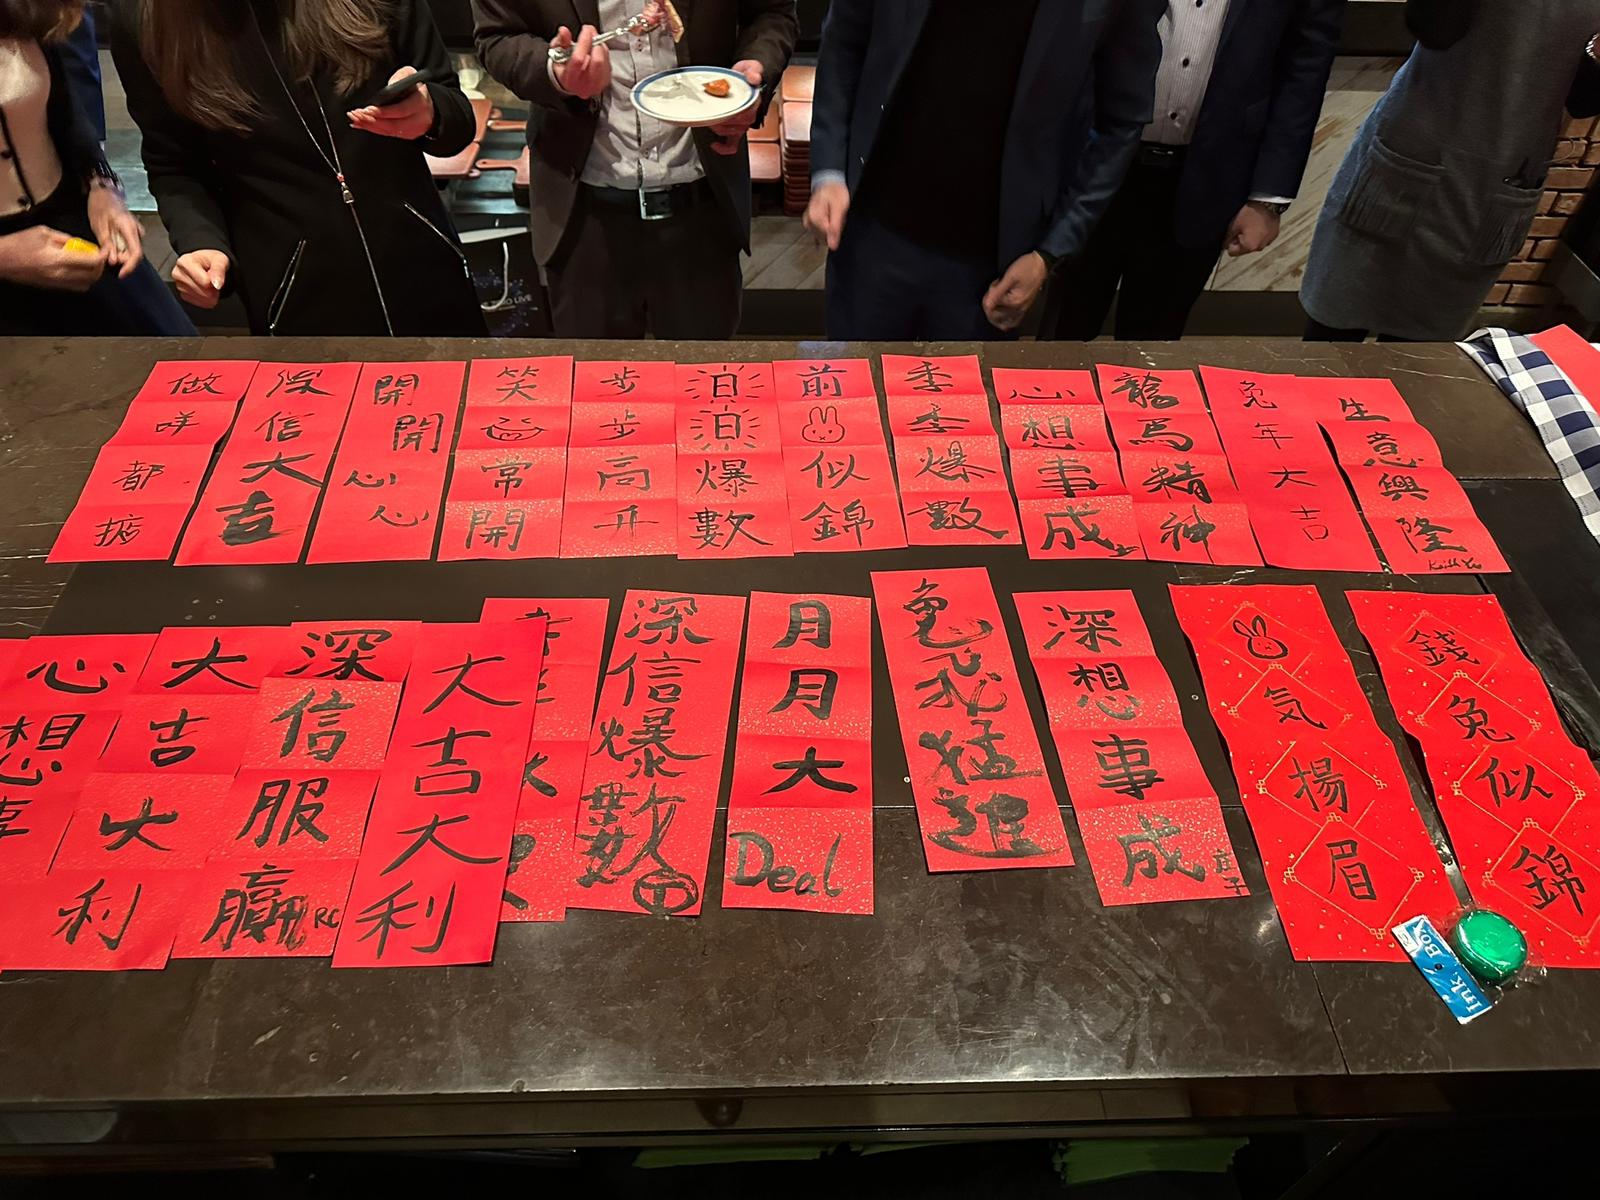 做咩都掂
深信大吉
開開心心
笑常開
步步高升
泊泊爆數
前似錦
季季爆數
心想事成
龍馬精神
兔年大吉
生意興隆
Keith Yu
心想事
大吉大利
深信服贏
RC
大吉大利
深信爆數
月月大Deal
兔飛猛進
深想事成
気揚眉
錢兔似錦
Ink Box
LIVE